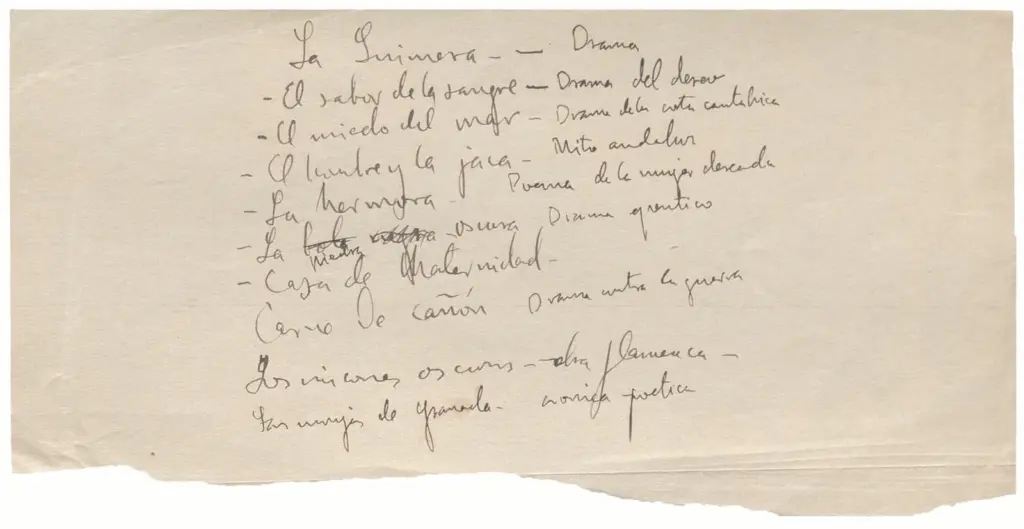 La Quimera - — Drama
- El sabor de la sangre — Drama del deseo
- El miedo del mar - Drama de la costa cantabrica
- El hombre y la jaca - Mito andaluz
- La hermosa - Poema de la mujer deseada
- La bola negra piedra oscura Drama epentico
- Casa de Maternidad -
Carne de cañón Drama contra la guerra
Los rincones oscuros - obra flamenca -
Las monjas de Granada - cronica poetica